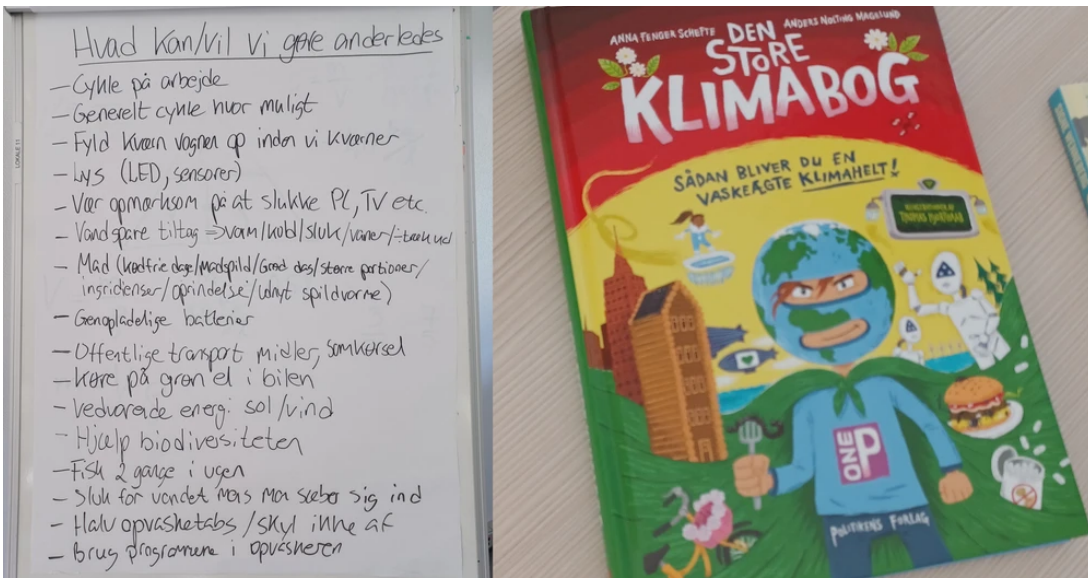 Hvad kan/vil vi gøre anderledes
- Cykle på arbejde
- Generelt cykle hvor muligt
- Fyld kværn vognen op inden vi kværner
- Lys (LED, sensorer)
- Vær opmærksom på at slukke PC, TV etc.
- Vandspare tiltag => varm/kold/sluk/vaner/
- Mad (kødfrie dage/madspild/Grød das/større portioner/
ingridienser/oprindelse/udnyt spildvarme)
- Genopladelige batterier
- Offentlige transport midler, samkørsel
- Køre på grøn el i bilen
- Vedvarende energi sol/vind
- Hjælp biodiversiteten
- Fisk 2 gange i ugen
- Sluk for vandet mens man sæber sig ind
- Halv opvasketabs/skyl ikke af
- Brug programmerne i opvaskeren
LOKALE 11
ANNA FENGER SCHEFTE
ANDERS NOLTING MAGELUND
DEN
STORE
KLIMABOG
SÅDAN BLIVER DU EN
VASKEÆGTE KLIMAHELT!
ILLUSTRATIONER AF
THOMAS HJORTHAAB
ONE P
POLITIKENS FORLAG